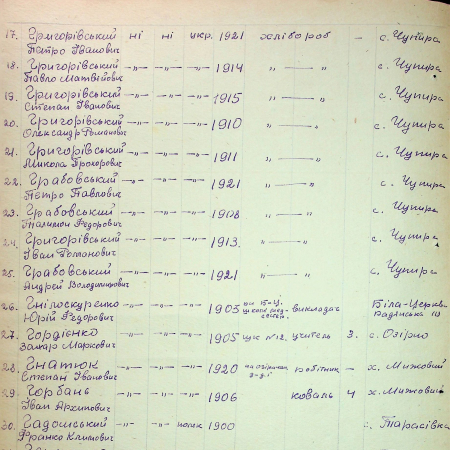 17. Григорівський ні ні укр. 1921 хлібороб — с. Чупира
Петро Іванович
18. Григорівський —"— —"— —"— 1914 " —— " с. Чупира
Павло Матвійович
19. Григорівський —"— —"— —"— 1915 " —— " с. Чупира
Степан Іванович
20. Григорівський —"— —"— —"— 1910 " —— " с. Чупира
Олександр Романович
21. Григорівський —"— —"— —"— 1911 " —— " с. Чупира
Микола Прохорович
22. Грабовський —"— —"— —"— 1921 " —— " с. Чупира
Петро Павлович
23. Грабовський —"— —"— —"— 1908 " —— " с. Чупира
Федорович
24. Григорівський —"— —"— —"— 1913. " —— " с. Чупира
Іван Романович
25. Грабовський —"— —"— —"— 1921 " —— " с. Чупира
Андрей Володимирович
26. Гнілоскуренко —"— —"— —"— 1903 Б-Ц. викладач Біла-Церква
Юрій Федорович школи мед- сестер. Радянська
27. Гордієнко —"— —"— —"— 1905 шк №12. учитель 3. с. Озірно
Захар Маркович
28. Гнатюк —"— —"— —"— 1920 робітник — х. Мижовий
Степан Іванович з-ді
29. Горбань —"— —"— —"— 1906 коваль 4 х. Мижовий
Іван Архипович
30. Гадомський —"— —"— поляк 1900 с. Тарасівка
Франко Климович